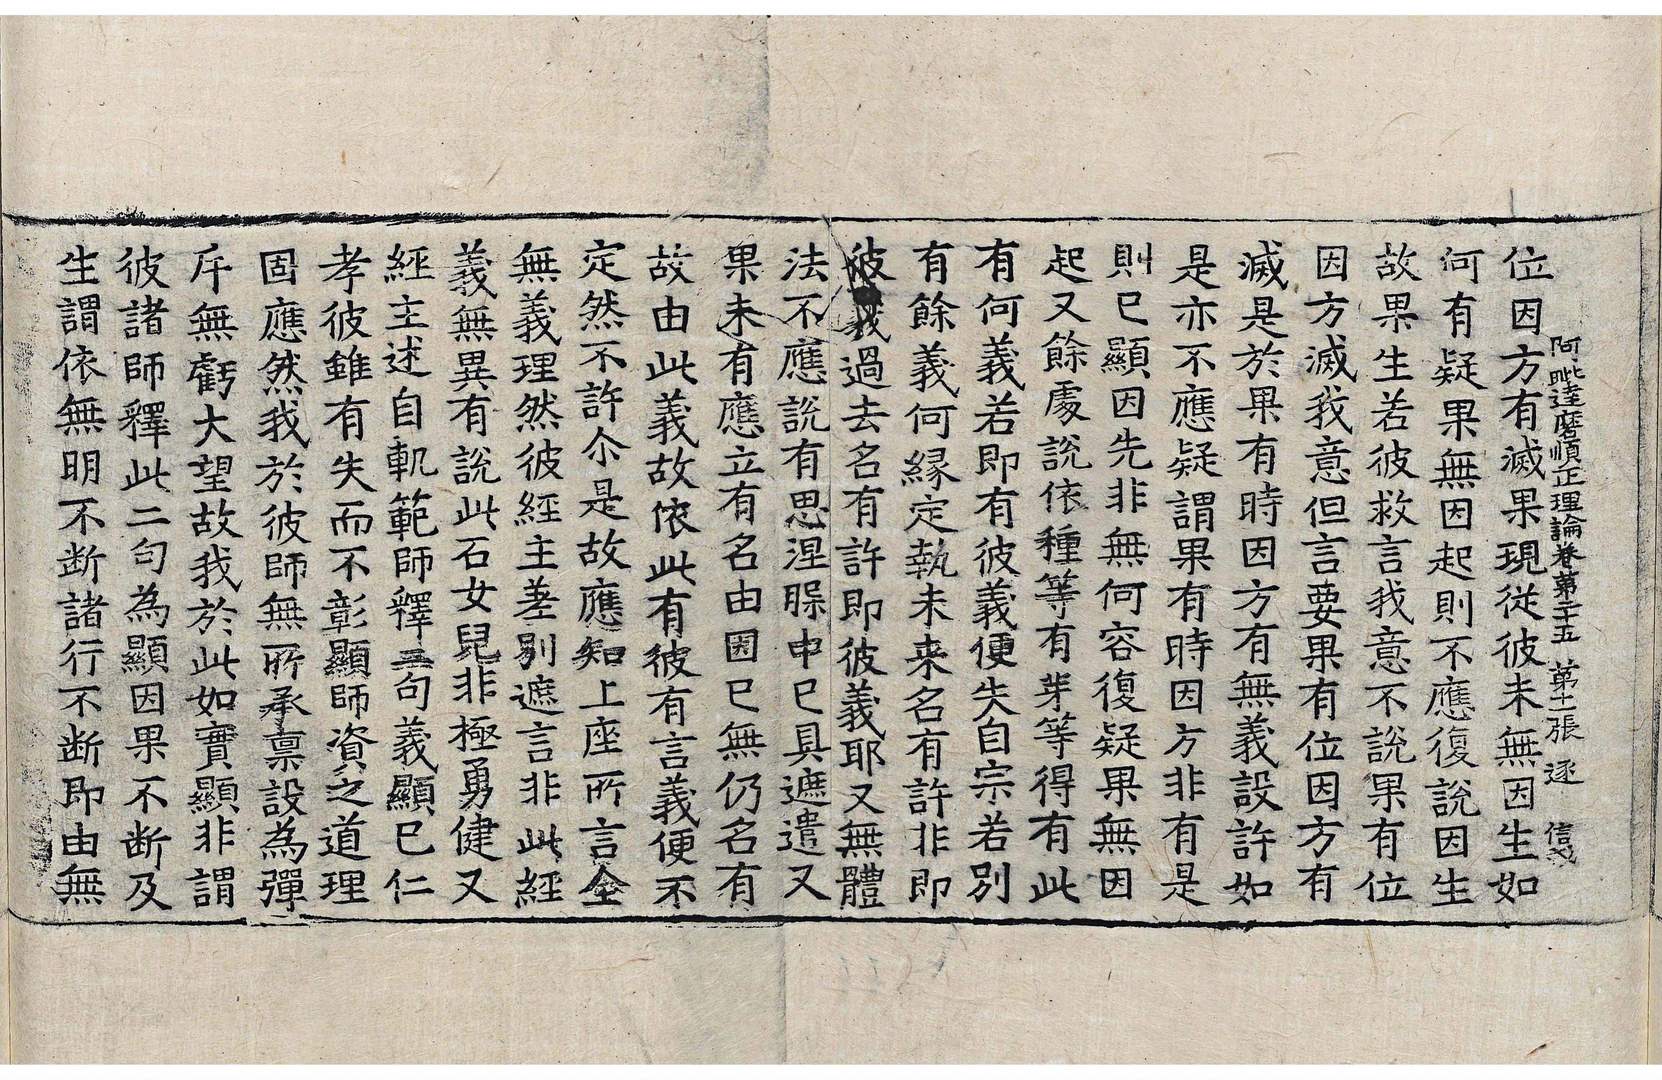 阿毗達磨順正理論卷第二十五 第十一張 逐 信戈
位因方有滅果現從彼未無因生如
何有疑果無因起則不應復說因生
故果生若彼救言我意不說果有位
因方滅我意但言要果有位因方有
滅是於果有時因方有無義設許如
是亦不應疑謂果有時因方非有是
則已顯因先非無何容復疑果無因
起又餘處說依種等有芽等得有此
有何義若即有彼義便失自宗若別
有餘義何緣定執未来名有許非即
彼義過去名有許即彼義耶又無體
法不應說有思涅槃中已具遮遣又
果未有應立有名由因已無仍名有
故由此義故依此有彼有言義便不
定然不許尒是故應知上座所言全
無義理然彼經主差別遮言非此經
義無異有說此石女兒非極勇健又
經主述自軌範師釋二句義顯已仁
孝彼雖有失而不彰顯師資之道理
固應然我於彼師無所承禀設為彈
斥無虧大望故我於此如實顯非謂
彼諸師釋此二句為顯因果不断及
生謂依無明不断諸行不断即由無